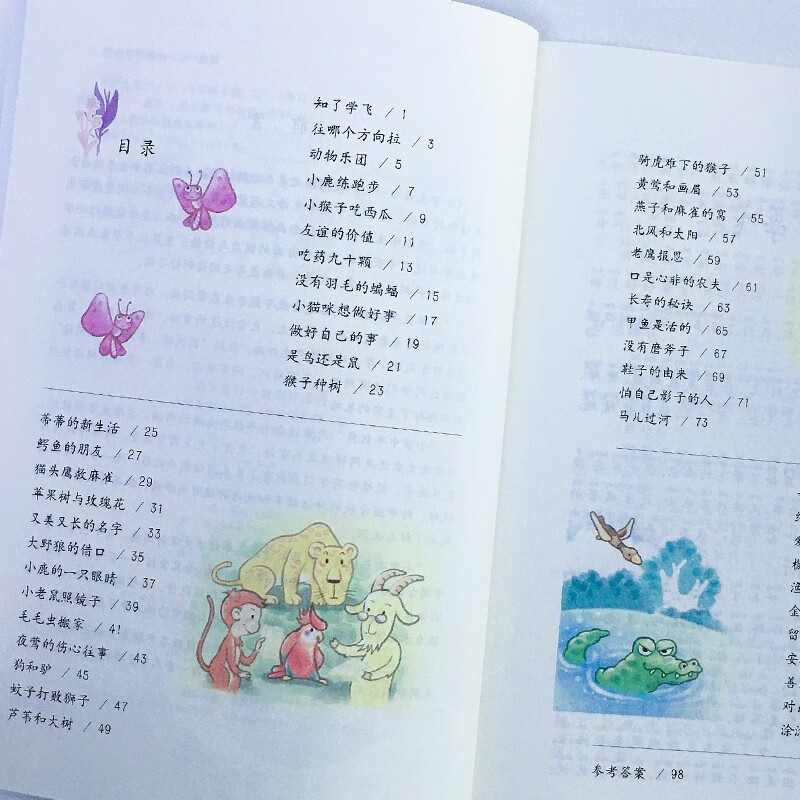 目录
知了学飞 / 1
往哪个方向拉 / 3
动物乐团 / 5
小鹿练跑步 / 7
小猴子吃西瓜 / 9
友谊的价值 / 11
吃药九十颗 / 13
没有羽毛的蝙蝠 / 15
小猫咪想做好事 / 17
做好自己的事 / 19
是鸟还是鼠 / 21
猴子种树 / 23
蒂蒂的新生活 / 25
鳄鱼的朋友 / 27
猫头鹰救麻雀 / 29
苹果树与玫瑰花 / 31
又美又长的名字 / 33
大野狼的借口 / 35
小鹿的一只眼睛 / 37
小老鼠照镜子 / 39
毛毛虫搬家 / 41
夜莺的伤心往事 / 43
狗和驴 / 45
蚊子打败狮子 / 47
芦苇和大树 / 49
骑虎难下的猴子 / 51
黄莺和画眉 / 53
燕子和麻雀的窝 / 55
北风和太阳 / 57
老鹰报恩 / 59
口是心非的农夫 / 61
长寿的秘诀 / 63
甲鱼是活的 / 65
没有磨斧子 / 67
鞋子的由来 / 69
怕自己影子的人 / 71
马儿过河 / 73
渔
企
留
安
善
对
涂
参考答案 / 98